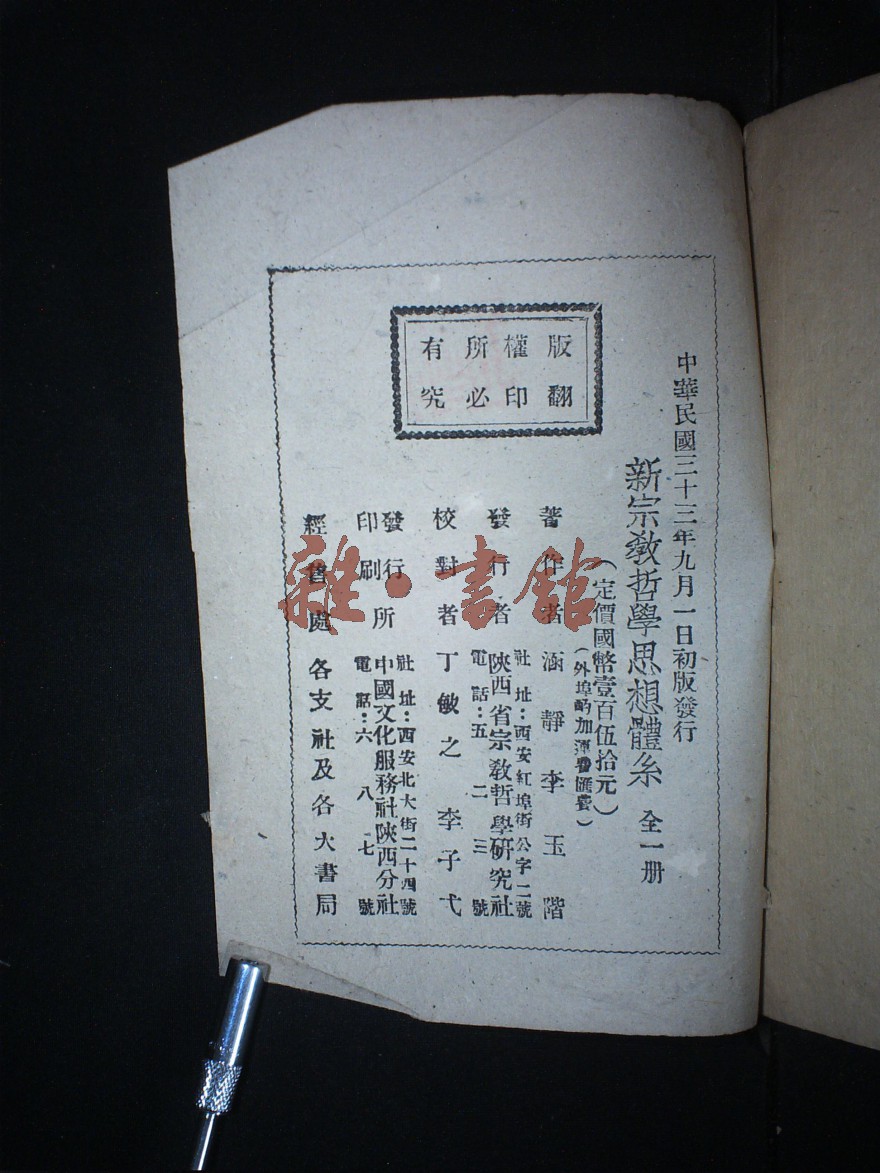 中華民國三十三年九月一日初版發行
新宗教哲學思想體系 全一册
(定價國幣壹百伍拾元)
(外埠酌加運費匯費)
版權所有
翻印必究
著作者 涵靜李玉階
發行者 陝西省宗敎哲學硏究社
社址:西安紅埠街公字二號
電話:五二三號
校對者 丁敏之 李子弋
發行印刷所 中國文化服務社陝西分社
社址:西安北大街二十四號
電話:六八七號
經售處 各支社及各大書局
雜·書館